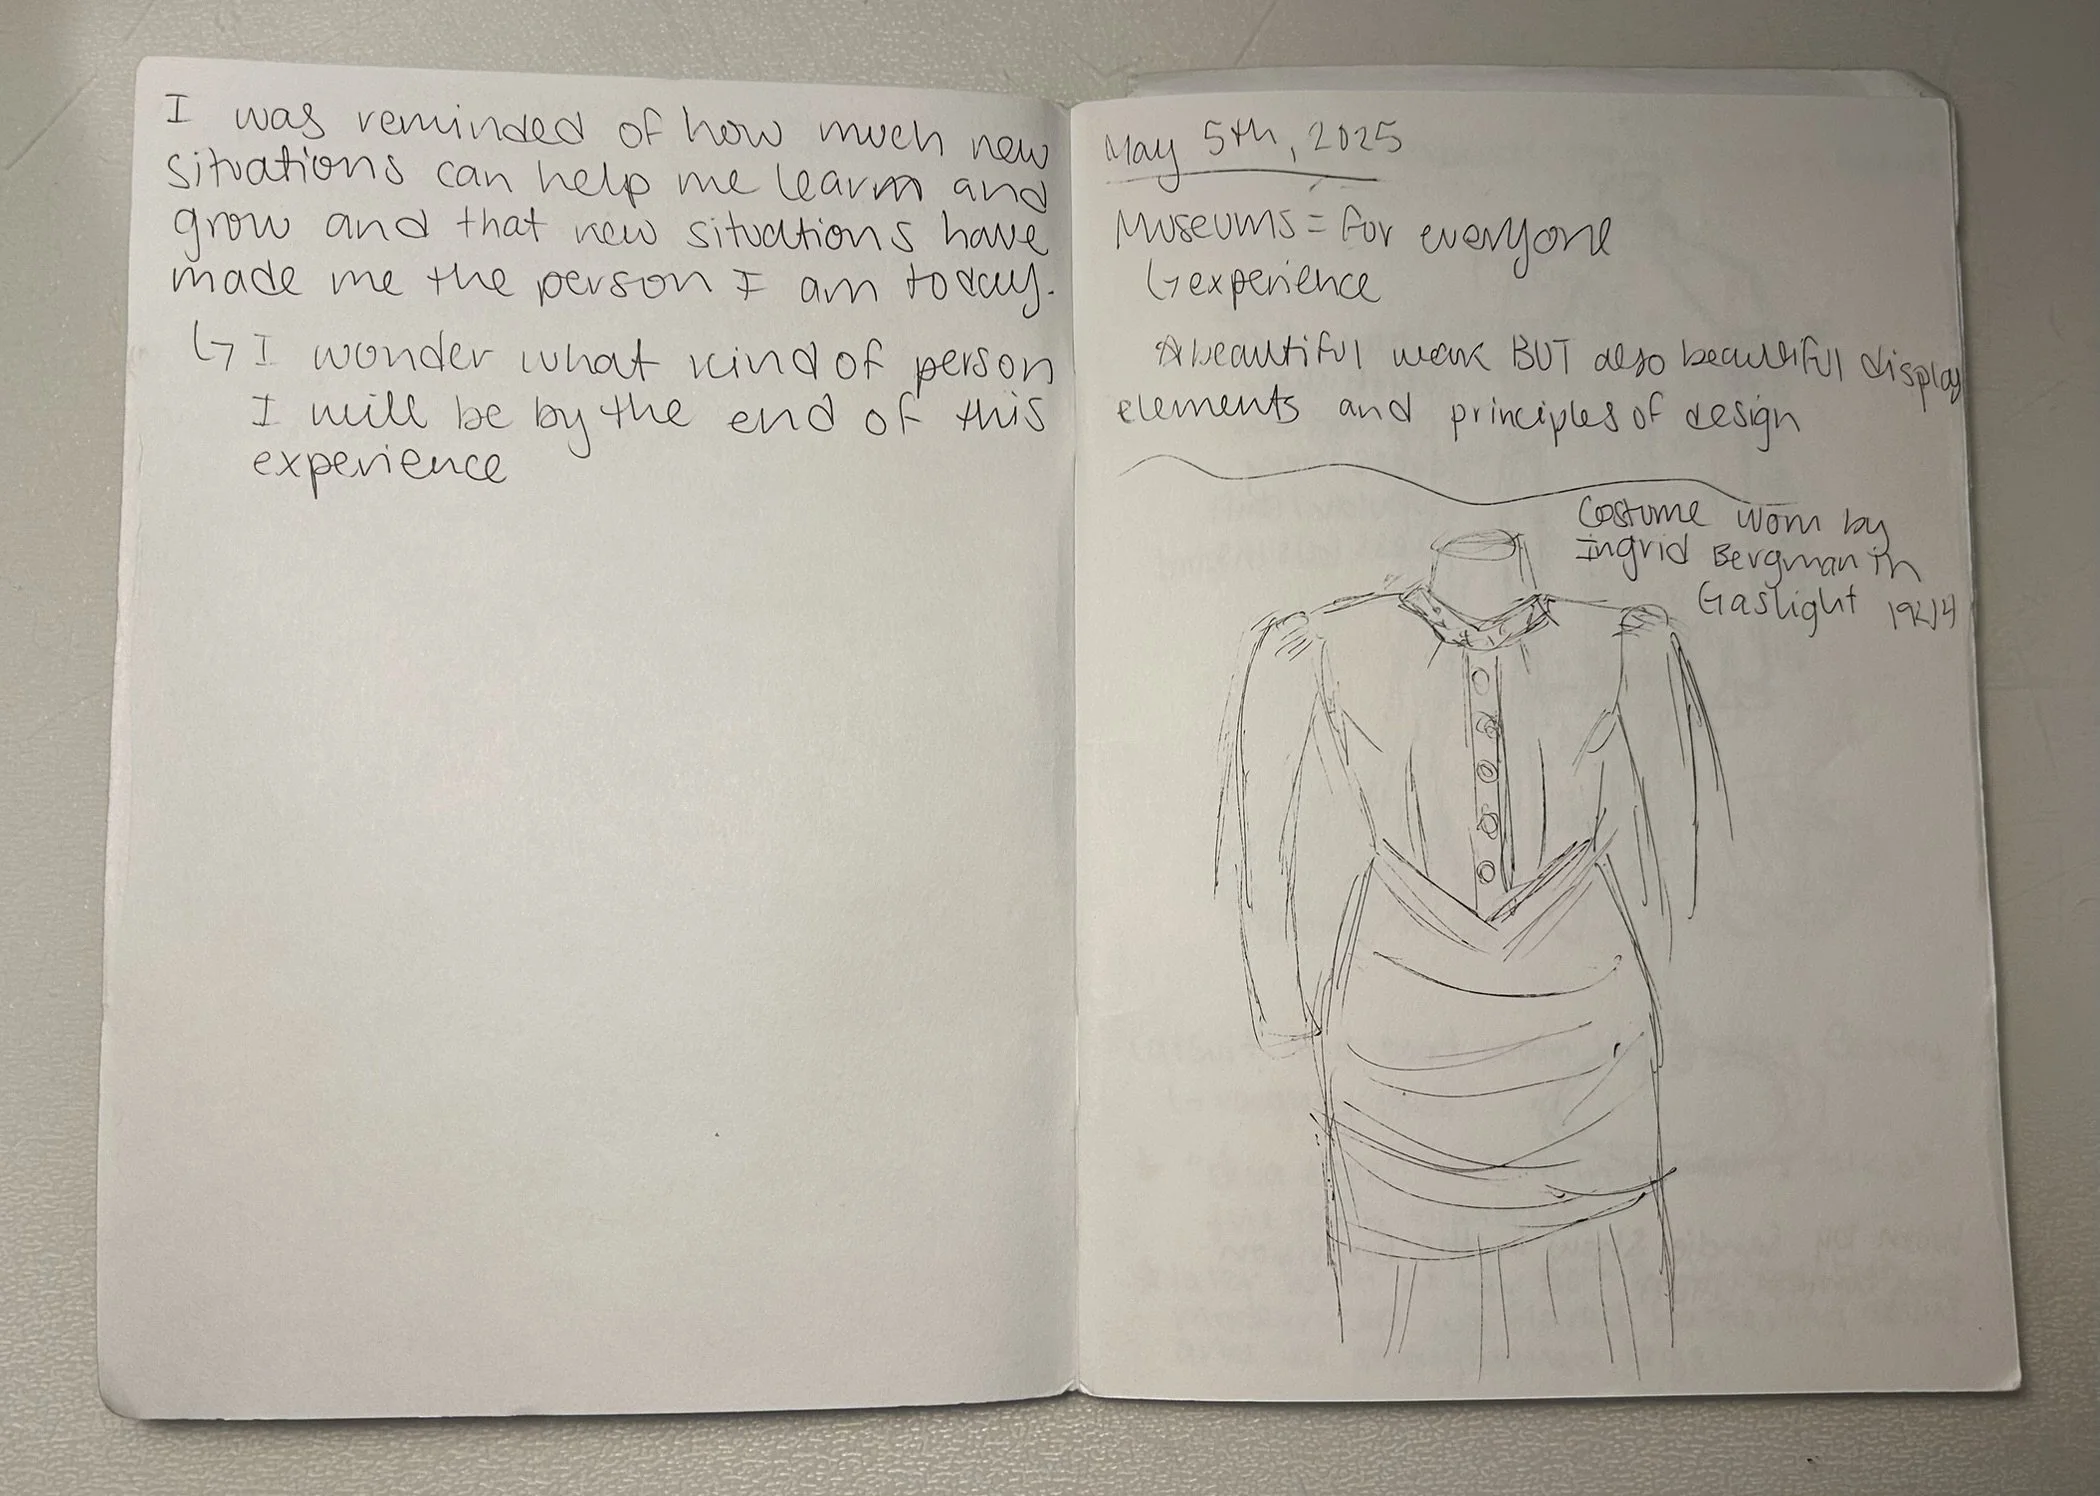 I was reminded of how much new
situations can help me learn and
grow and that new situations have
made me the person I am today.
↳ I wonder what kind of person
I will be by the end of this
experience
May 5th, 2025
Museums = for everyone
↳ experience
☆ beautiful work BUT also beautiful display
elements and principles of design
Costume worn by
Ingrid Bergman in
Gaslight 1944